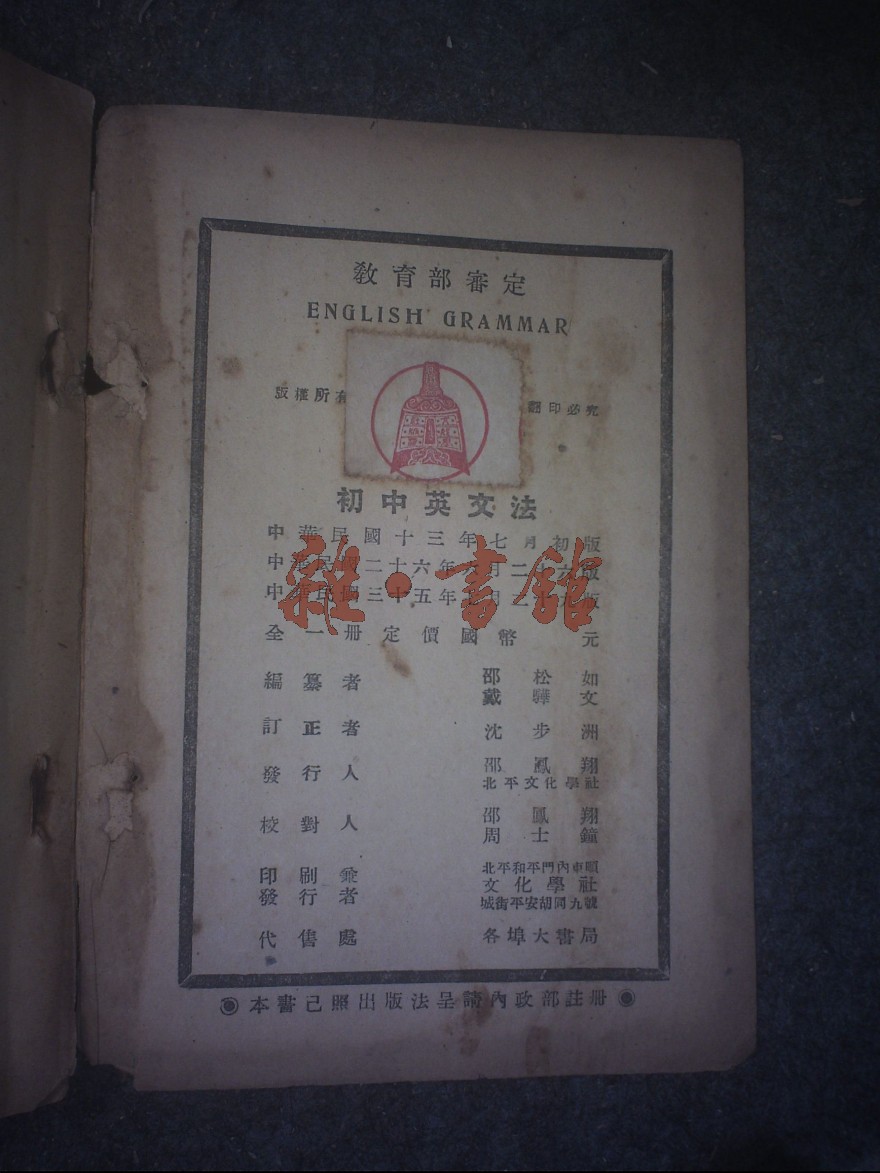 教育部審定
ENGLISH GRAMMAR
版權所有 翻印必究
初中英文法
中華民國十三年七月初版
中華民國二十六年 月二十六版
中華民國三十五年 月二十 版
全一册定價國幣 元
編纂者 邵松如
戴驊文
訂正者 沈步洲
發行人 邵鳳翔
北平文化學社
校對人 邵鳳翔
周士鐘
印刷兼 北平和平門內東順
發行者 文化學社
城街平安胡同九號
代售處 各埠大書局
本書已照出版法呈請內政部註册
雜·書館